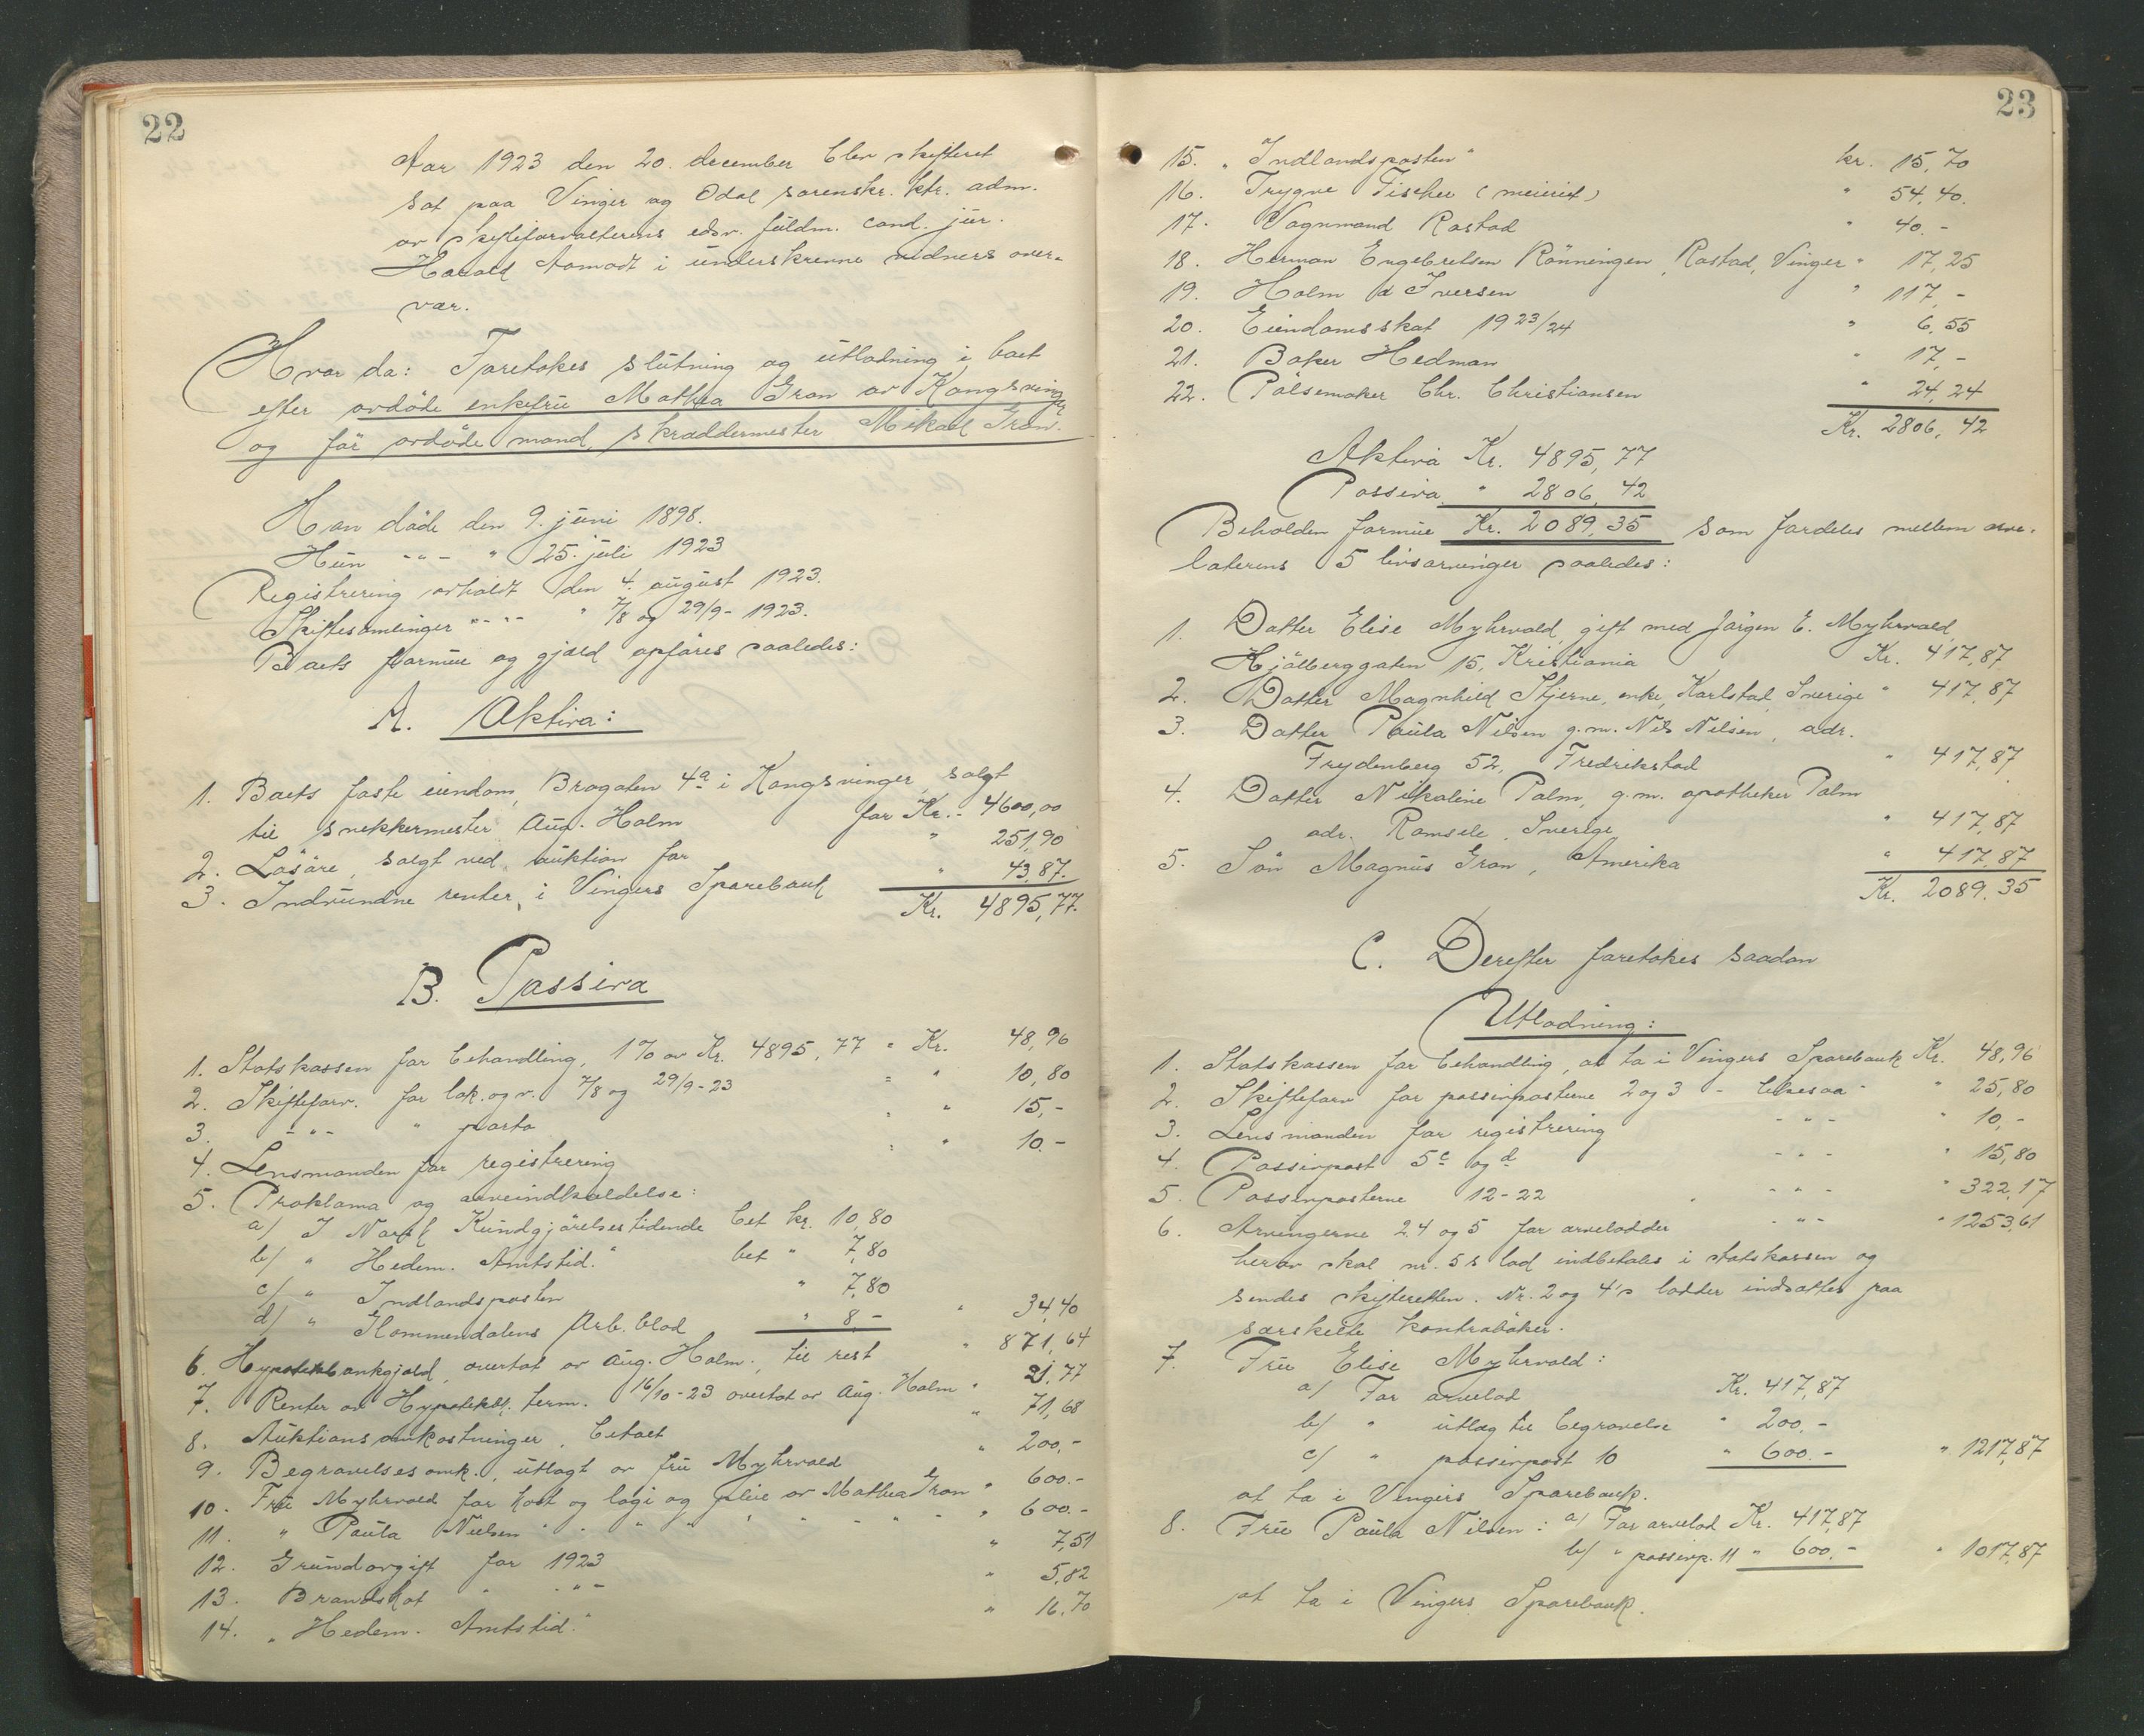 22
Aar 1923 den 20. december blev skifteret
sat paa Vinger og Odal sorenskr. ktr. adm.
av skifteforvalterens edsv. fuldm. cand. jur.
Harald Aamodt i underskrevne vidners over-
vær.
Hvor da: Foretokes slutning og utlodning i boet
efter avdöde enkefru Mathea Gran av Kongsvinger
og för avdöde mand, skræddermester Mikael Gran.
Han döde den 9. juni 1898.
Hun -"- " 25. juli 1923
Registrering avholdt den 4. august 1923.
Skiftesamlinger "-"- " 7/8 og 29/9- 1923.
Boets formue og gjæld opföres saaledes:
A. Aktiva:
1. Boets faste eiendom, Brogaten 4a i Kongsvinger, solgt
til snekkermester Aug. Holm for Kr. - 4600,00
2. Lösöre, solgt ved auktion for " 251,90
3. Indvundne renter i Vingers Sparebank " 43,87.
Kr. 4895,77.
B. Passiva
1. Statskassen for behandling, 1% av Kr. 4895,77 = Kr. 48,96
2. Skifteforv. for lok. og v. 7/8 og 29/9-23 = " 10,80
3. -"- " porto = " 15,-
4. Lensmanden for registrering = " 10.-
5. Proklama og arveindkaldelse:
a/ I Norsk Kundgjörelsestidende bet kr. 10,80
b/ " Hedem. Amtstid." bet " 7,80
c/ " Indlandsposten " 7,80
d/ " Glommendalens Arb. blad " 8,- " 34,40
6. Hypotekbankgjæld, overtat av Aug. Holm, til rest " 871,64
7. Renter av Hypotekbk. term. 16/10-23 overtat av Aug. Holm " 21,77
8. Auktionsomkostninger, betalt " 71,68
9. Begravelsesomk., utlagt av fru Myhrvold " 200,-
10. Fru Myhrvold for kost og logi og pleie av Mathea Gran " 600.-
11. " Paula Nielsen " " " " " " " " " 600.-
12. Grundavgift for 1923 " 7,51
13. Brandskat " -"- " 5,82
14. "Hedem. Amtstid." " 16,70
23
15. "Indlandsposten" kr. 15,70
16. Trygve Fischer (meieriet) " 54,40.
17. Vognmand Rastad " 40.-
18. Herman Engebretsen Rönningen, Rastad, Vinger " 17,25
19. Holm & Iversen " 117,-
20. Eiendomsskat 1923/24 " 6,55
21. Baker Hedman " 17,-
22. Pölsemaker Chr. Christiansen " 24,24
Kr. 2806,42
Aktiva Kr. 4895,77
Passiva " 2806,42
Beholden formue Kr. 2089,35 som fordeles mellem arve-
laterens 5 livsarvinger saaledes:
1. Datter Elise Myhrvold, gift med Jörgen E. Myhrvold,
Hjölberggaten 15, Kristiania Kr. 417,87
2. Datter Magnhild Stjerne, enke, Karlstad, Sverige " 417,87
3. Datter Paula Nilsen g.m. Nils Nilsen, adr.
Frydenberg 52, Fredrikstad " 417,87
4. Datter Nikoline Palm, g.m. apotheker Palm
adr. Ramsele, Sverige " 417,87
5. Sön Magnus Gran, Amerika " 417,87
Kr. 2089.35
C. Derefter foretokes saadan
Utlodning:
1. Statskassen for behandling, at ta i Vingers Sparebank Kr. 48,96
2. Skifteforv for passivposterne 2 og 3 - likesaa - " 25,80
3. Lensmanden for registrering -"- " 10,-
4. Passivpost 5c og d -"- " 15,80
5. Passivposterne 12-22 -"- " 322,17
6. Arvingerne 2.4 og 5 for arvelodder -"- " 1253,61
herav skal nr. 5s lod indbetales i statskassen og
sendes skifteretten. Nr. 2 og 4's lodder indsættes paa
særskilte kontraböker.
7. Fru Elise Myhrvold:
a/ For arvelod Kr. 417,87
b/ " utlæg til begravelse " 200,-
c/ " passivpost 10 " 600.- " 1217,87
at ta i Vingers Sparebank.
8. Fru Paula Nilsen: a/ For arvelod Kr. 417,87
b/ " passivp. 11 " 600,- " 1017,87
at ta i Vingers Sparebank.